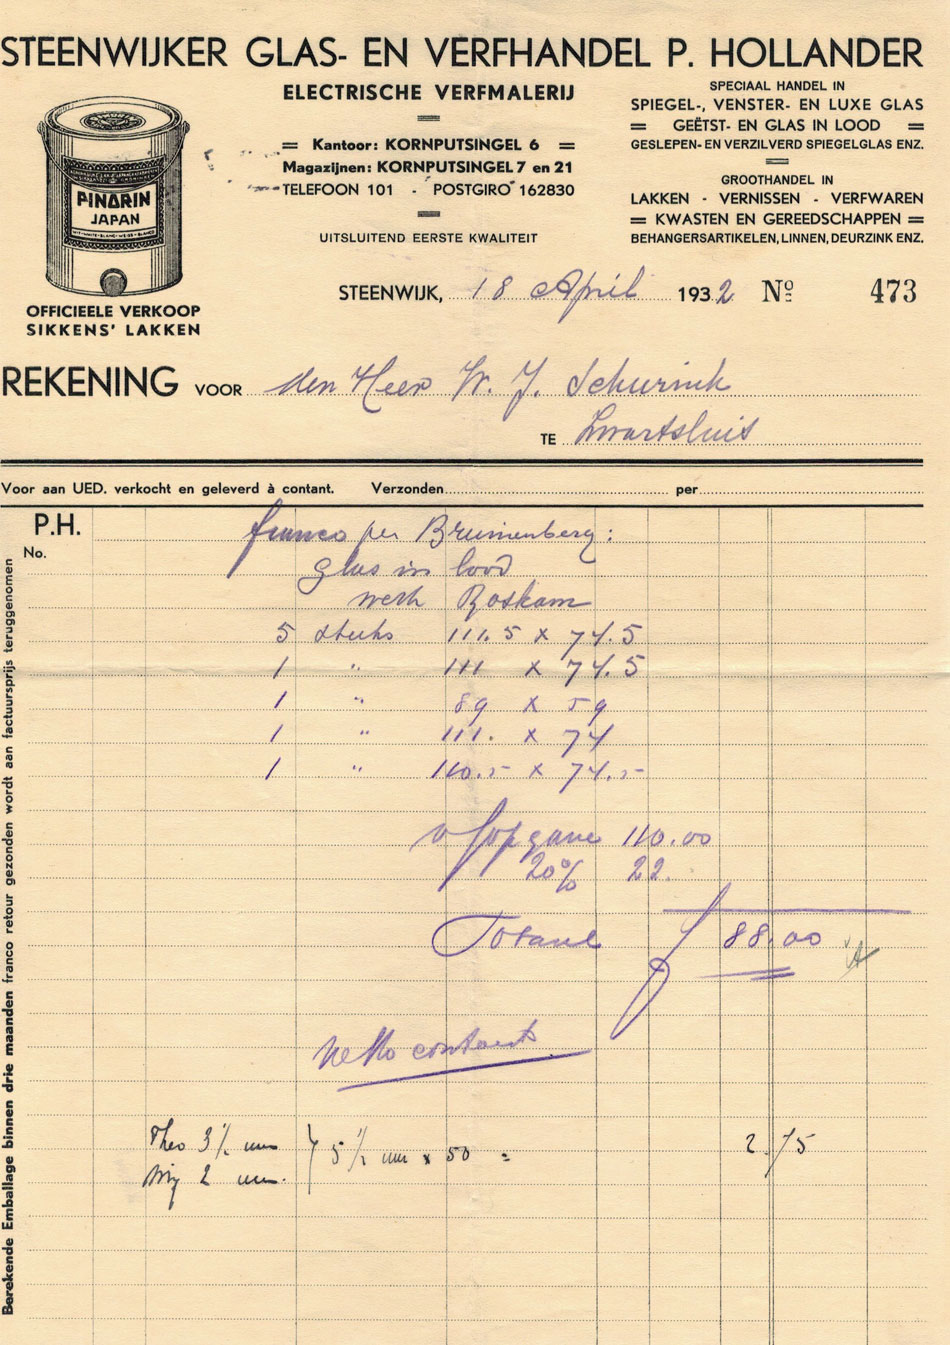 STEENWIJKER GLAS- EN VERFHANDEL P. HOLLANDER
ELECTRISCHE VERFMALERIJ
Kantoor: KORNPUTSINGEL 6
Magazijnen: KORNPUTSINGEL 7 en 21
TELEFOON 101 - POSTGIRO 162830
UITSLUITEND EERSTE KWALITEIT
SPECIAAL HANDEL IN
SPIEGEL-, VENSTER- EN LUXE GLAS
GEËTST- EN GLAS IN LOOD
GESLEPEN- EN VERZILVERD SPIEGELGLAS ENZ.
GROOTHANDEL IN
LAKKEN - VERNISSEN - VERFWAREN
KWASTEN EN GEREEDSCHAPPEN
BEHANGERSARTIKELEN, LINNEN, DEURZINK ENZ.
PINARIN
JAPAN
OFFICIEELE VERKOOP
SIKKENS' LAKKEN
STEENWIJK, 18 April 1932 No 473
REKENING VOOR den Heer W. J. Schurink
TE Zwartsluis
Voor aan UED. verkocht en geleverd à contant. Verzonden per
P.H.
No.
franco per Brunenberg:
glas in lood
werk Roskam
5 stuks 111.5 x 74.5
1 " 111 x 74.5
1 " 89 x 59
1 " 111. x 74
1 " 110.5 x 74.5
opgave 110.00
20% 22.
Totaal f 88.00
Netto contant
Theo 3½ uur
Wij 2 uur.
} 5½ uur x 50 = 2.75
Berekende Emballage binnen drie maanden franco retour gezonden wordt aan factuursprijs teruggenomen